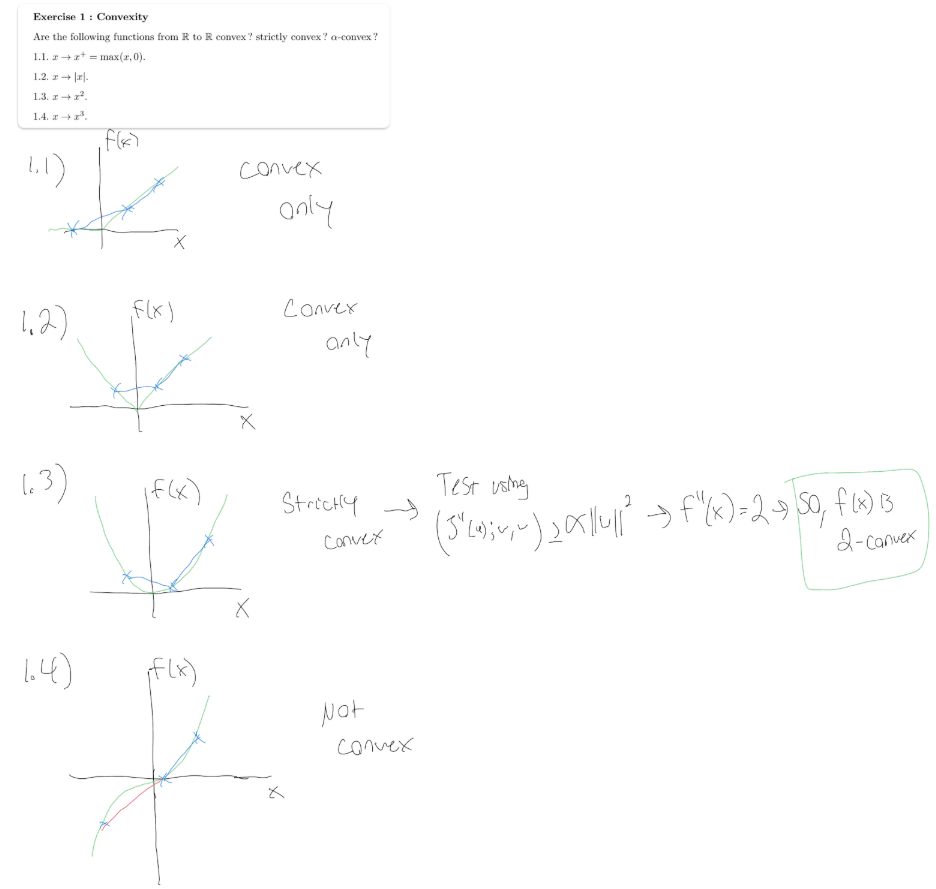 Exercise 1 : Convexity
Are the following functions from ℝ to ℝ convex ? strictly convex ? α-convex ?
1.1. x → x⁺ = max(x, 0).
1.2. x → |x|.
1.3. x → x².
1.4. x → x³.
1.1)
f(x)
x
convex
only
1.2)
f(x)
x
Convex
only
1.3)
f(x)
x
Strictly
convex
→ Test using
(J''(u);v,v) ≥ α||v||² → f''(x) = 2 → So, f(x) is
2-convex
1.4)
f(x)
x
Not
convex